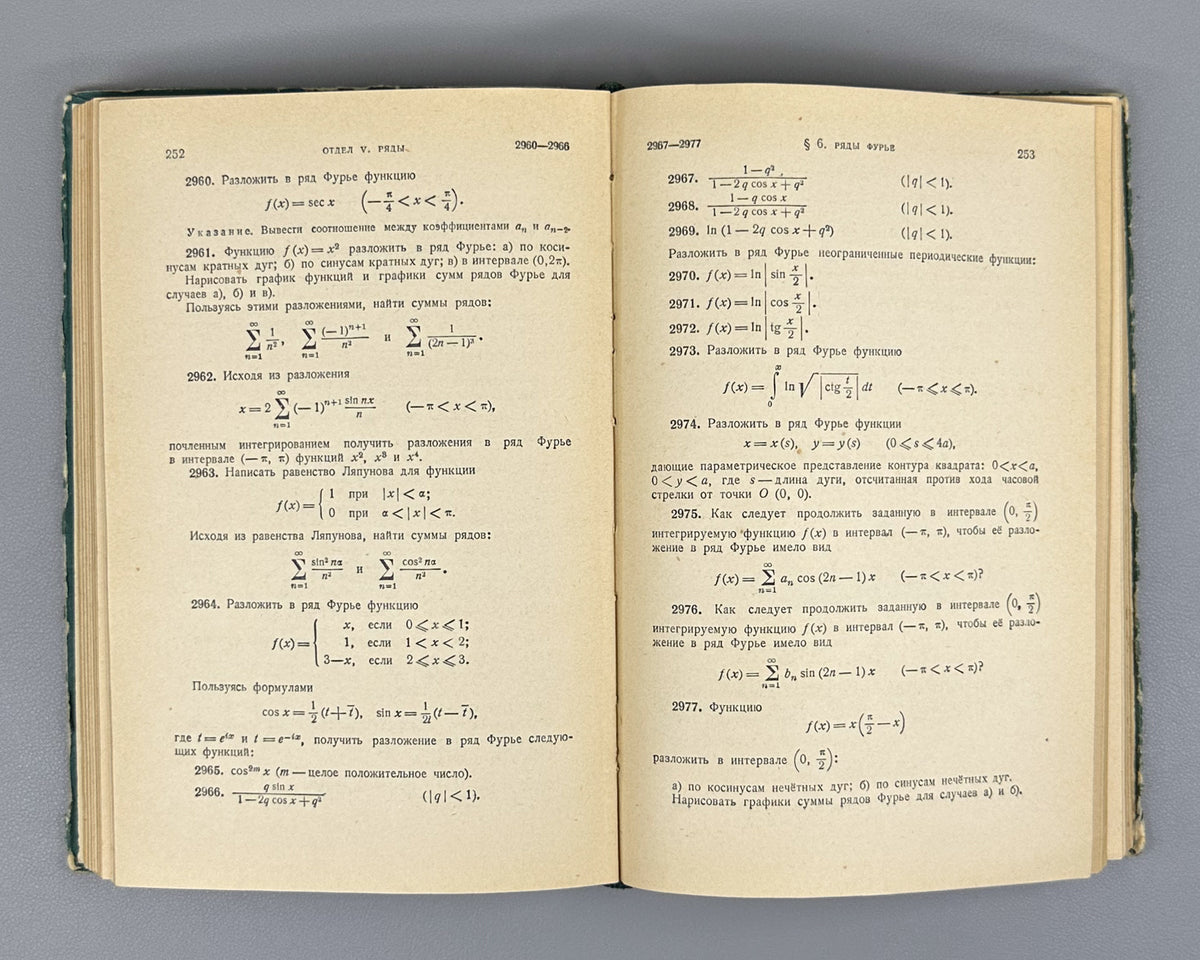 252 ОТДЕЛ V. РЯДЫ 2960—2966
2960. Разложить в ряд Фурье функцию
f(x) = sec x (−π/4 < x < π/4).
Указание. Вывести соотношение между коэффициентами aₙ и aₙ₋₂.
2961. Функцию f(x) = x² разложить в ряд Фурье: а) по коси-
нусам кратных дуг; б) по синусам кратных дуг; в) в интервале (0,2π).
Нарисовать график функций и графики сумм рядов Фурье для
случаев а), б) и в).
Пользуясь этими разложениями, найти суммы рядов:
∞ ∑ n=1 1/n², ∞ ∑ n=1 (−1)ⁿ⁺¹/n² и ∞ ∑ n=1 1/(2n − 1)².
2962. Исходя из разложения
x = 2 ∞ ∑ n=1 (−1)ⁿ⁺¹ sin nx/n (−π < x < π),
почленным интегрированием получить разложения в ряд Фурье
в интервале (−π, π) функций x², x³ и x⁴.
2963. Написать равенство Ляпунова для функции
f(x) = { 1 при |x| < α;
0 при α < |x| < π.
Исходя из равенства Ляпунова, найти суммы рядов:
∞ ∑ n=1 sin² nα/n² и ∞ ∑ n=1 cos² nα/n².
2964. Разложить в ряд Фурье функцию
f(x) = { x, если 0 ⩽ x ⩽ 1;
1, если 1 < x < 2;
3—x, если 2 ⩽ x ⩽ 3.
Пользуясь формулами
cos x = 1/2 (t + t̄), sin x = 1/2i (t − t̄),
где t = eⁱˣ и t̄ = e⁻ⁱˣ, получить разложение в ряд Фурье следую-
щих функций:
2965. cos²ᵐ x (m — целое положительное число).
2966. q sin x/(1 − 2q cos x + q²) (|q| < 1).
2967—2977 § 6. РЯДЫ ФУРЬЕ 253
2967. (1 − q²)/(1 − 2 q cos x + q²) (|q| < 1).
2968. (1 − q cos x)/(1 − 2 q cos x + q²) (|q| < 1).
2969. ln (1 − 2q cos x + q²) (|q| < 1).
Разложить в ряд Фурье неограниченные периодические функции:
2970. f(x) = ln |sin x/2|.
2971. f(x) = ln |cos x/2|.
2972. f(x) = ln |tg x/2|.
2973. Разложить в ряд Фурье функцию
f(x) = ∫₀ˣ ln √|ctg t/2| dt (−π ⩽ x ⩽ π).
2974. Разложить в ряд Фурье функции
x = x(s), y = y(s) (0 ⩽ s ⩽ 4a),
дающие параметрическое представление контура квадрата: 0<x<a,
0 < y < a, где s — длина дуги, отсчитанная против хода часовой
стрелки от точки O (0, 0).
2975. Как следует продолжить заданную в интервале (0, π/2)
интегрируемую функцию f(x) в интервал (−π, π), чтобы её разло-
жение в ряд Фурье имело вид
f(x) = ∞ ∑ n=1 aₙ cos (2n − 1) x (−π < x < π)?
2976. Как следует продолжить заданную в интервале (0, π/2)
интегрируемую функцию f(x) в интервал (−π, π), чтобы её разло-
жение в ряд Фурье имело вид
f(x) = ∞ ∑ n=1 bₙ sin (2n − 1) x (−π < x < π)?
2977. Функцию
f(x) = x (π/2 − x)
разложить в интервале (0, π/2):
а) по косинусам нечётных дуг; б) по синусам нечётных дуг.
Нарисовать графики суммы рядов Фурье для случаев а) и б).